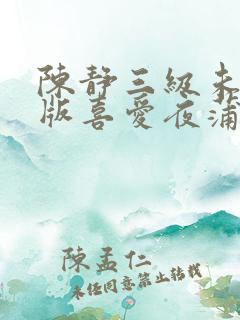 陳靜三級未
版喜愛夜蒲
陳孟仁
未经同意禁止转载